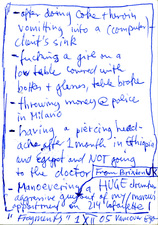 - after doing coke + heroin
vomitting into a (computer)
client's sink
- fucking a girl on a
low table covered with
bottles + glasses, table broke
- throwing money @ police
in Milano
- having a piercing head-
ache after 1 month in Ethiopia
and Egypt and NOT going
to the doctor From Britain UK
- Manoevering a HUGE drunken
aggressive out of my
appointment on 214 Lafayette
"Fragments" 1 XII 05 Vancouver